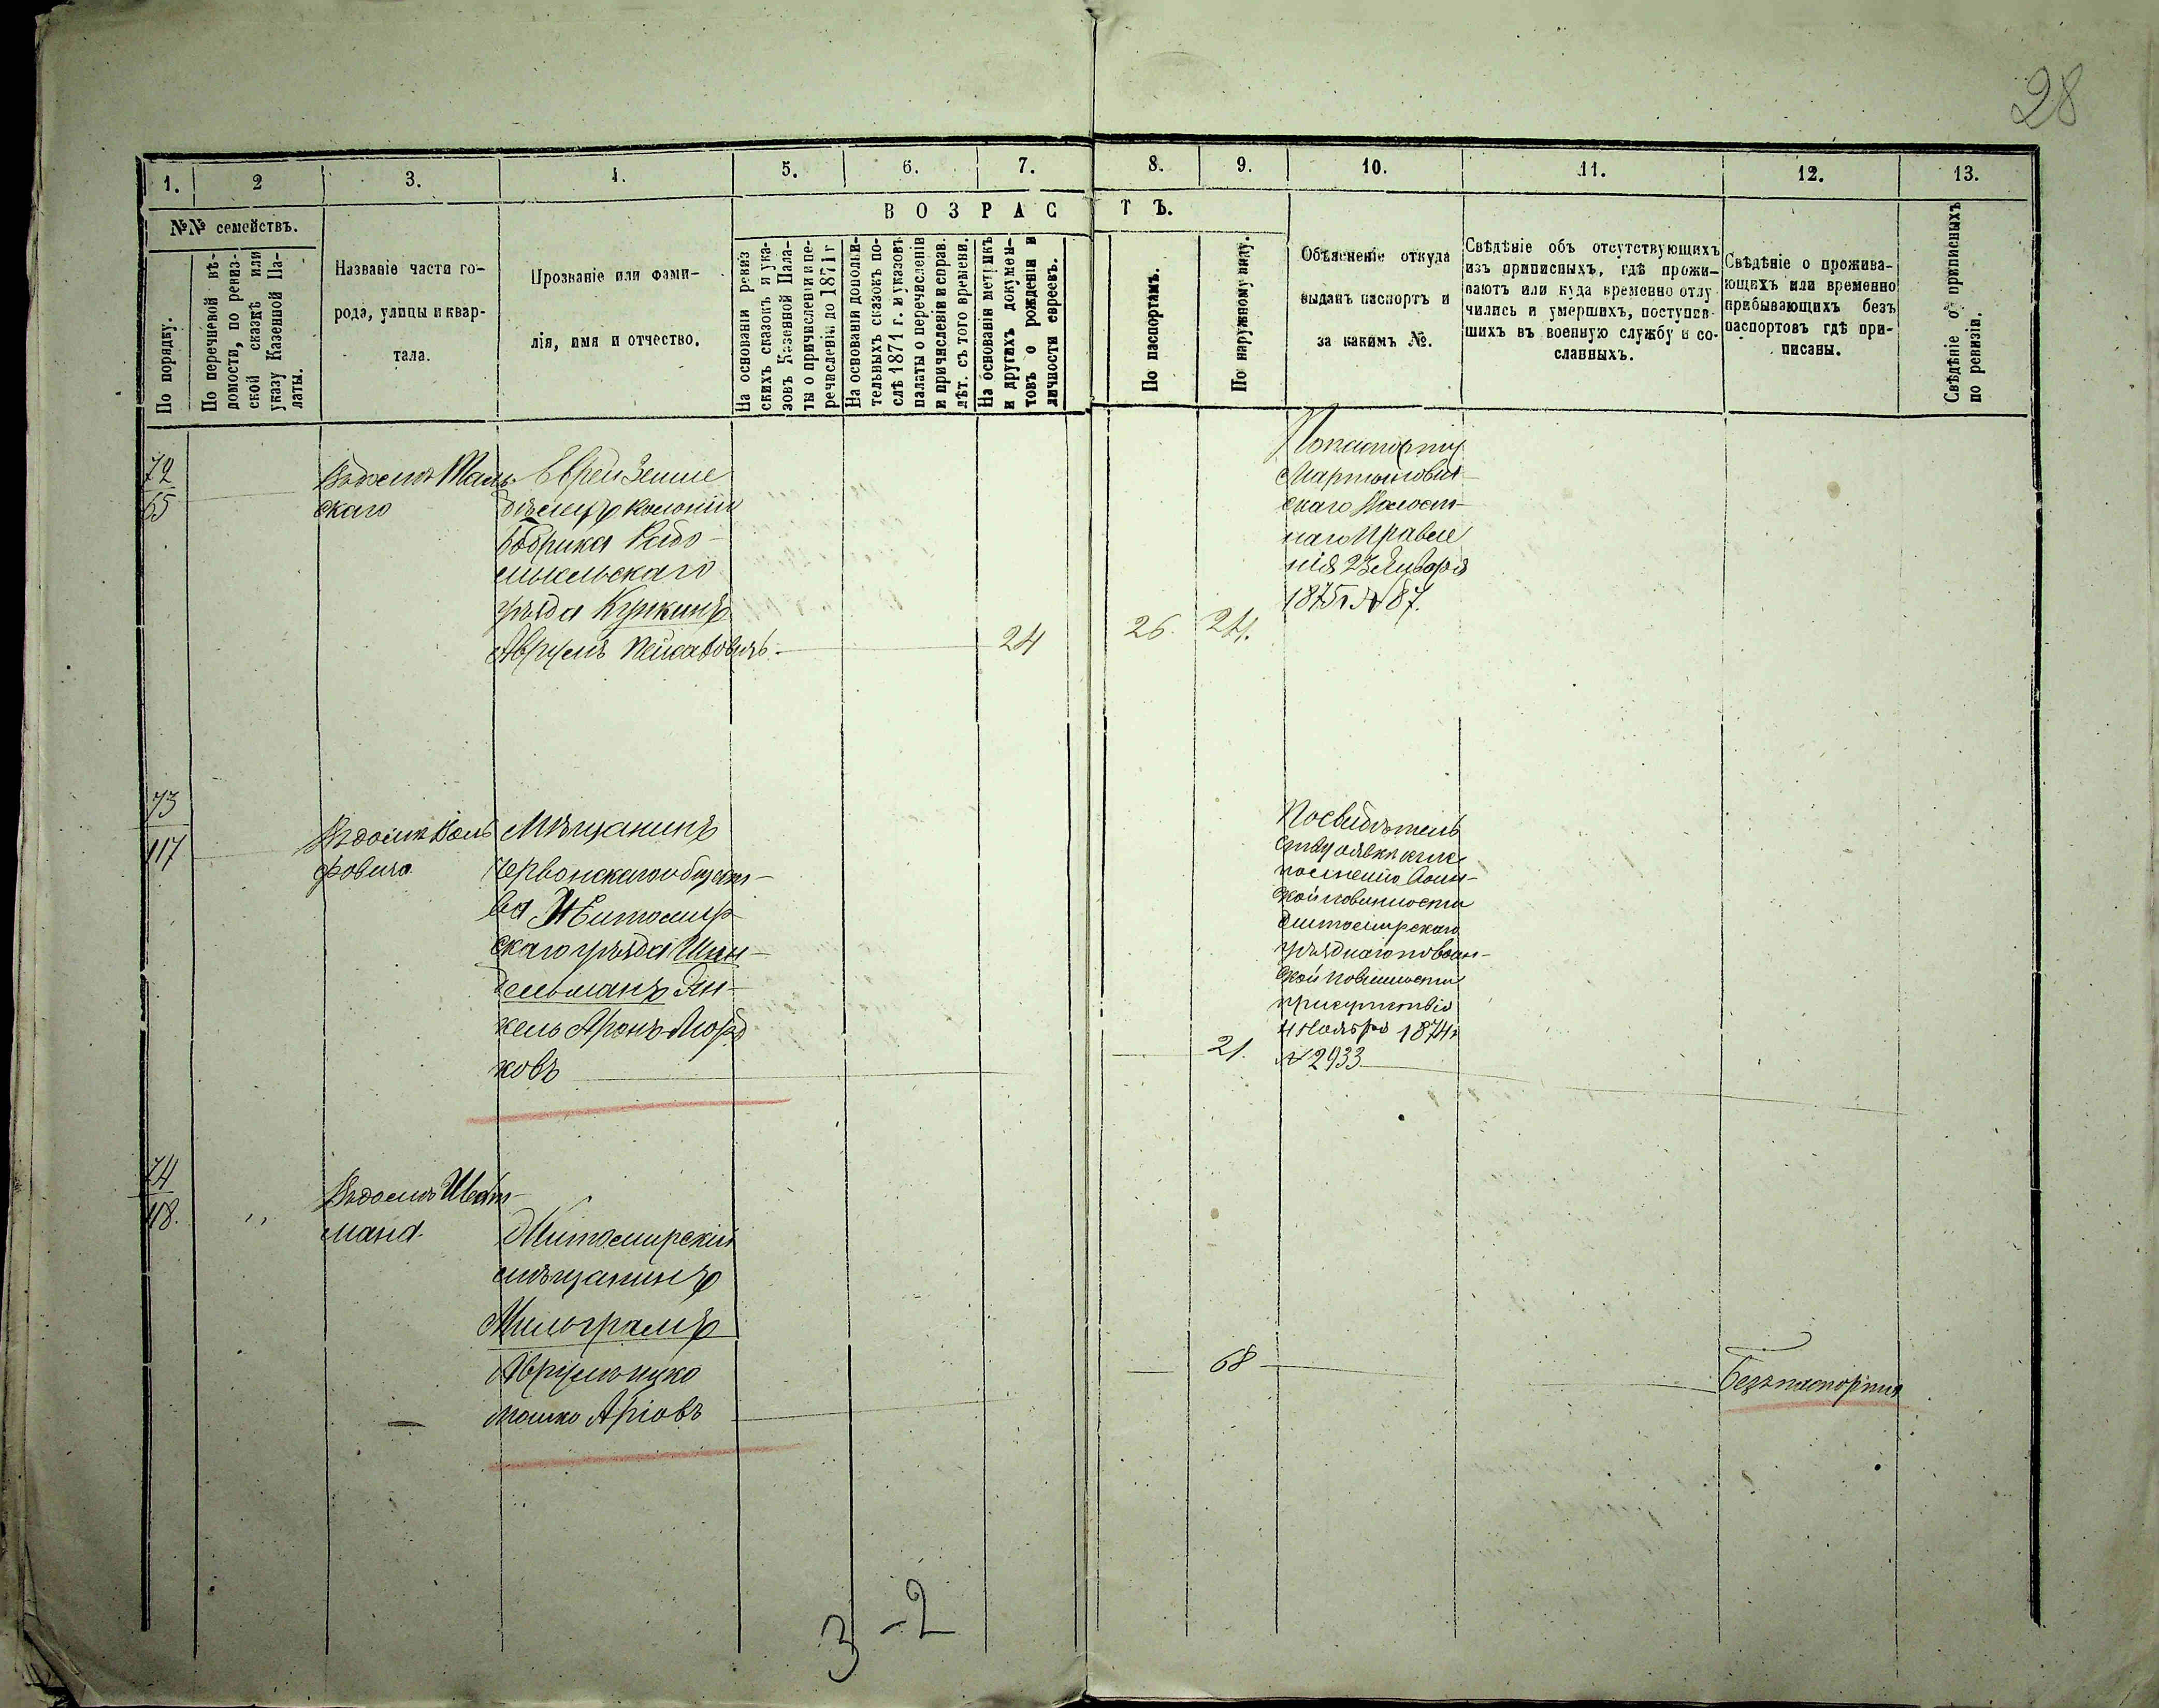 28
1. 2 3. 4. 5. 6. 7. 8. 9. 10. 11. 12. 13.
№№ семействъ.
По порядку.
По перечневой вѣ-
домости, по ревиз-
ской сказкѣ или
указу Казенной Па-
латы.
Названіе части го-
рода, улицы и квар-
тала.
Прозваніе или фами-
лія, имя и отчество.
ВОЗРАСТЪ.
На основаніи ревиз
скихъ сказокъ и ука-
зовъ Казенной Пала-
ты о причисленіи и пе-
речисленіи до 1871 г
На основаніи дополни-
тельныхъ сказокъ по-
слѣ 1871 г. и указовъ
палаты о перечисленіи
и причисленіи исправ.
лѣт. съ того времени.
На основаніи метрикъ
и другихъ докумен-
товъ о рожденіи и
личности евреевъ.
По паспортамъ.
По наружному виду.
Объясненіе откуда
выданъ паспортъ и
за какимъ №.
Свѣдѣніе объ отсутствующихъ
изъ приписныхъ, гдѣ прожи-
ваютъ или куда временно отлу
чились и умершихъ, поступив-
шихъ въ военную службу и со-
сланныхъ.
Свѣдѣніе о прожива-
ющихъ или временно
прибывающихъ безъ
паспортовъ гдѣ при-
писаны.
Свѣдѣніе о приписныхъ
по ревизіи.
72
65
Въ домѣ Таль-
скаго
Еврей Земле
дѣлецъ колоніи
Бобрика Радо-
мысльскаго
уѣзда
Аврумъ Пейсаховичъ
24
26.
24.
По паспорту
Мартыновит
скаго Волост-
наго Правле
нія 23 Января
1875 г № 87.
73
117
Въ домѣ Воль
фовича
Мѣщанинъ
Червонскаго общест-
ва Житомир
скаго уѣзда
дельманъ Ян-
кель Аронъ Морд
ковъ
21.
По свидѣтель
ству о явкѣ къ ис
полненію воин-
ской повинности
Житомирскаго
уѣзднаго по воин-
ской повинности
присутствія
4 Ноября 1874 г
№ 2933
74
118.
"
мана.
Житомирскій
мѣщанинъ
Милыграмъ
Аврумъ Ицко
Мошко Аріовъ
68
Безъ паспорта
3 - 2